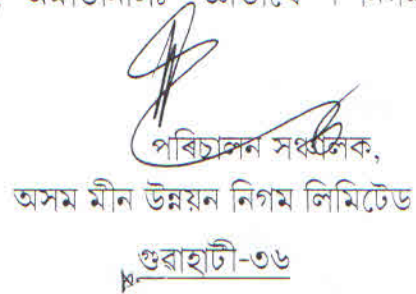 পৰিচালন সঞ্চালক,
অসম মীন উন্নয়ন নিগম লিমিটেড
গুৱাহাটী-৩৬